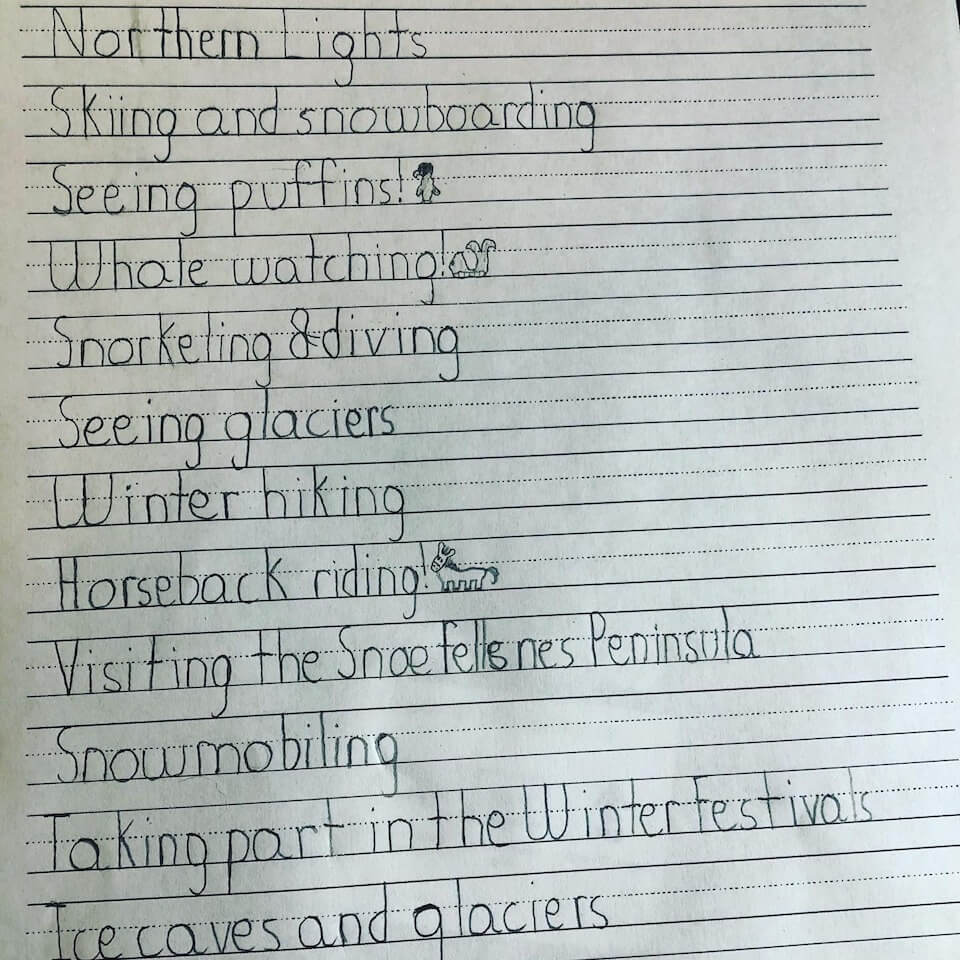 Northern Lights
Skiing and snowboarding
Seeing puffins!
Whale watching!
Snorkeling & diving
Seeing glaciers
Winter hiking
Horseback riding!
Visiting the Snaefellsnes Peninsula
Snowmobiling
Taking part in the Winter festivals
Ice caves and glaciers